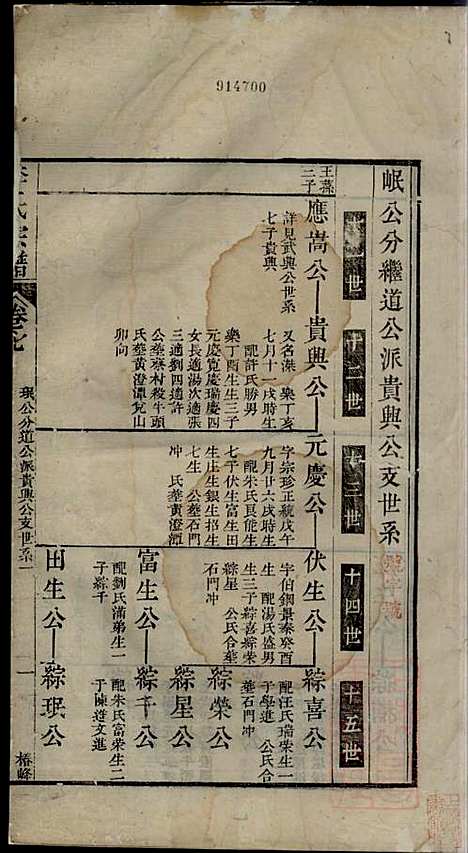 914700
岷公分繼道公派貴興公支世系
世
十二世
十三世
十四世
十五世
王葆
三子
應嵩公
詳見武興公世系
七子貴興
貴興公
又名滐 樂丁亥
七月十一戌時生
配許氏勝男
樂丁酉生生三子
元慶寬慶瑞慶四
女長適湯次適張
三適劉四適許
公葬寮村殺牛頭
氏葬黃澄潭艮山
卯向
元慶公
字宗珍正統戊午
九月廿六戌時生
配朱氏艮能生
七子伏生富生田
生庄生銀生招生
七生 公葬石門
冲 氏葬黃澄潭
伏生公
字伯鋼景泰癸酉
生 配湯氏盛男
生三子綜喜綜榮
綜星 公氏合葬
石門冲
綜喜公
配汪氏瑞榮生一
子學進 公氏合
葬石門冲
綜榮公
綜星公
富生公
配劉氏滿弟生一
子綜千
綜千公
配朱氏富榮生二
子陳道文進
田生公
綜珉公
氏宗譜
卷七
珉公分道公派貴興公支世系
一
椿峰